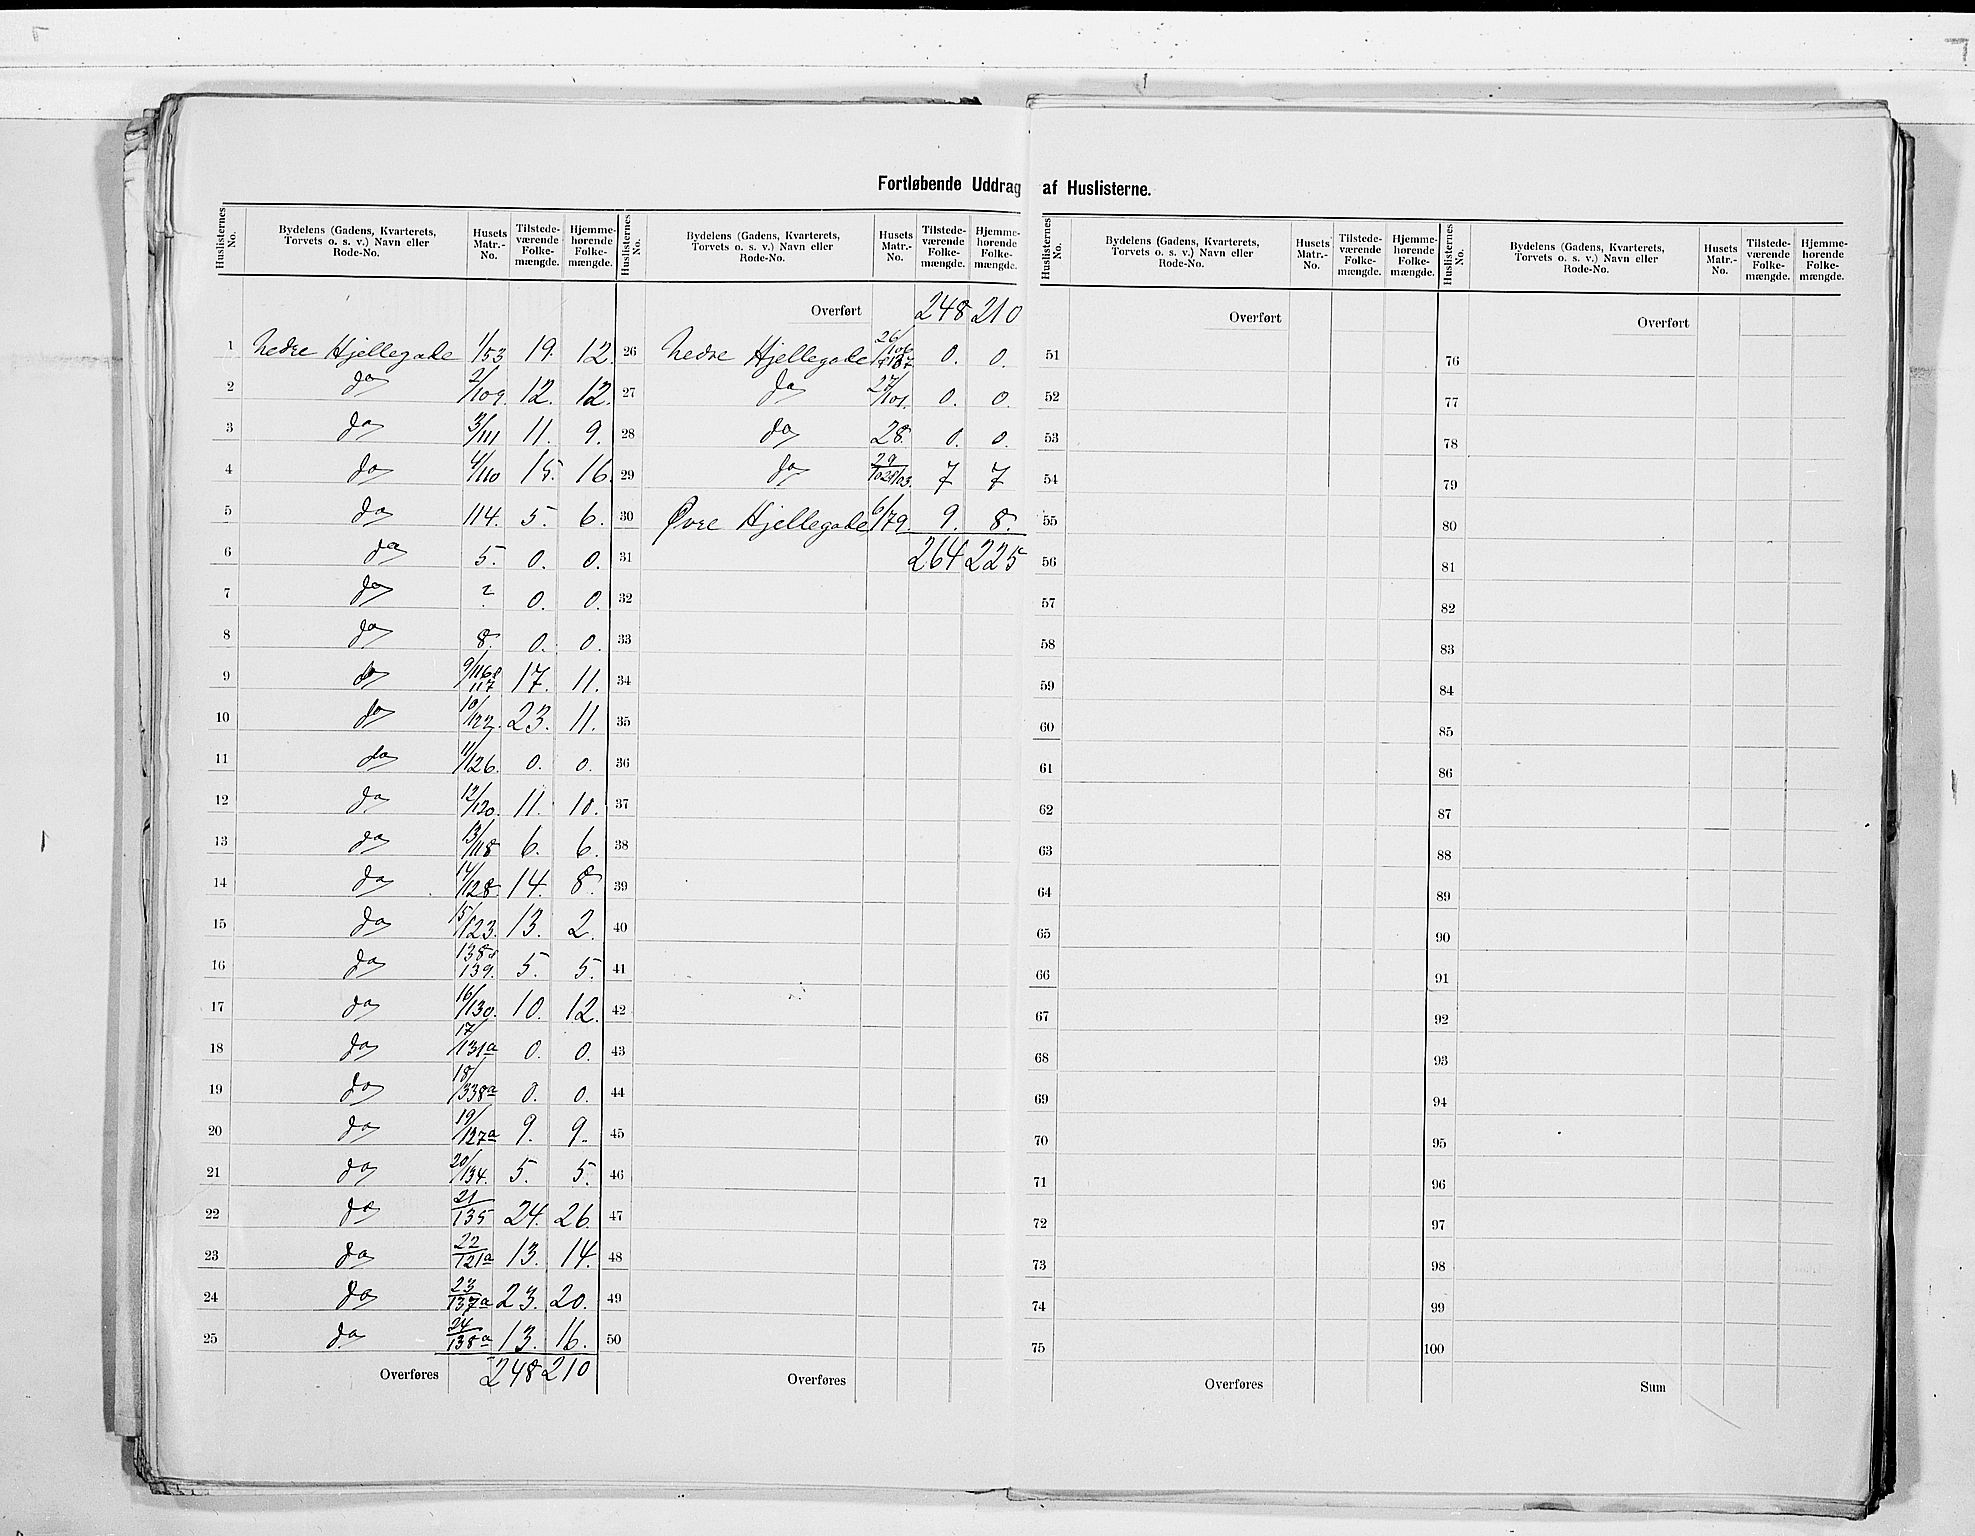 Fortløbende Uddrag af Huslisterne.
Huslisternes No. Bydelens (Gadens, Kvarterets, Torvets o. s. v.) Navn eller Rode-No. Husets Matr.-No. Tilstede-værende Folke-mængde. Hjemme-hørende Folke-mængde.
1 Nedre Hjellegade 1/53 19. 12.
2 do 2/109. 12. 12.
3 do 3/111 11. 9.
4 do 4/110 15. 16.
5 do 114. 5. 6.
6 do 5. 0. 0.
7 do ? 0. 0.
8 do 8. 0. 0.
9 do 9/116 & 117 17. 11.
10 do 10/122. 23. 11.
11 do 11/126. 0. 0.
12 do 12/120. 11. 10.
13 do 13/118 6. 6.
14 do 14/128. 14. 8.
15 do 15/123. 13. 2.
16 do 138 & 139. 5. 5.
17 do 16/130. 10. 12.
18 do 17/131a 0. 0.
19 do 18/338a 0. 0.
20 do 19/127a 9. 9.
21 do 20/134. 5. 5.
22 do 21/135 24. 26.
23 do 22/121a 13. 14.
24 do 23/137a 23. 20.
25 do 24/138a 13. 16.
Overføres 248 210
Huslisternes No. Bydelens (Gadens, Kvarterets, Torvets o. s. v.) Navn eller Rode-No. Husets Matr.-No. Tilstede-værende Folke-mængde. Hjemme-hørende Folke-mængde.
Overført 248 210
26 Nedre Hjellegade 26/106 0. 0.
27 do 27/101. 0. 0.
28 do 28. 0. 0.
29 do 29/102 & 103. 7 7
30 Øvre Hjellegade 6/179. 9. 8.
31 264 225
32
33
34
35
36
37
38
39
40
41
42
43
44
45
46
47
48
49
50
Overføres
Huslisternes No. Bydelens (Gadens, Kvarterets, Torvets o. s. v.) Navn eller Rode-No. Husets Matr.-No. Tilstede-værende Folke-mængde. Hjemme-hørende Folke-mængde.
Overført
51
52
53
54
55
56
57
58
59
60
61
62
63
64
65
66
67
68
69
70
71
72
73
74
75
Overføres
Huslisternes No. Bydelens (Gadens, Kvarterets, Torvets o. s. v.) Navn eller Rode-No. Husets Matr.-No. Tilstede-værende Folke-mængde. Hjemme-hørende Folke-mængde.
Overført
76
77
78
79
80
81
82
83
84
85
86
87
88
89
90
91
92
93
94
95
96
97
98
99
100
Sum